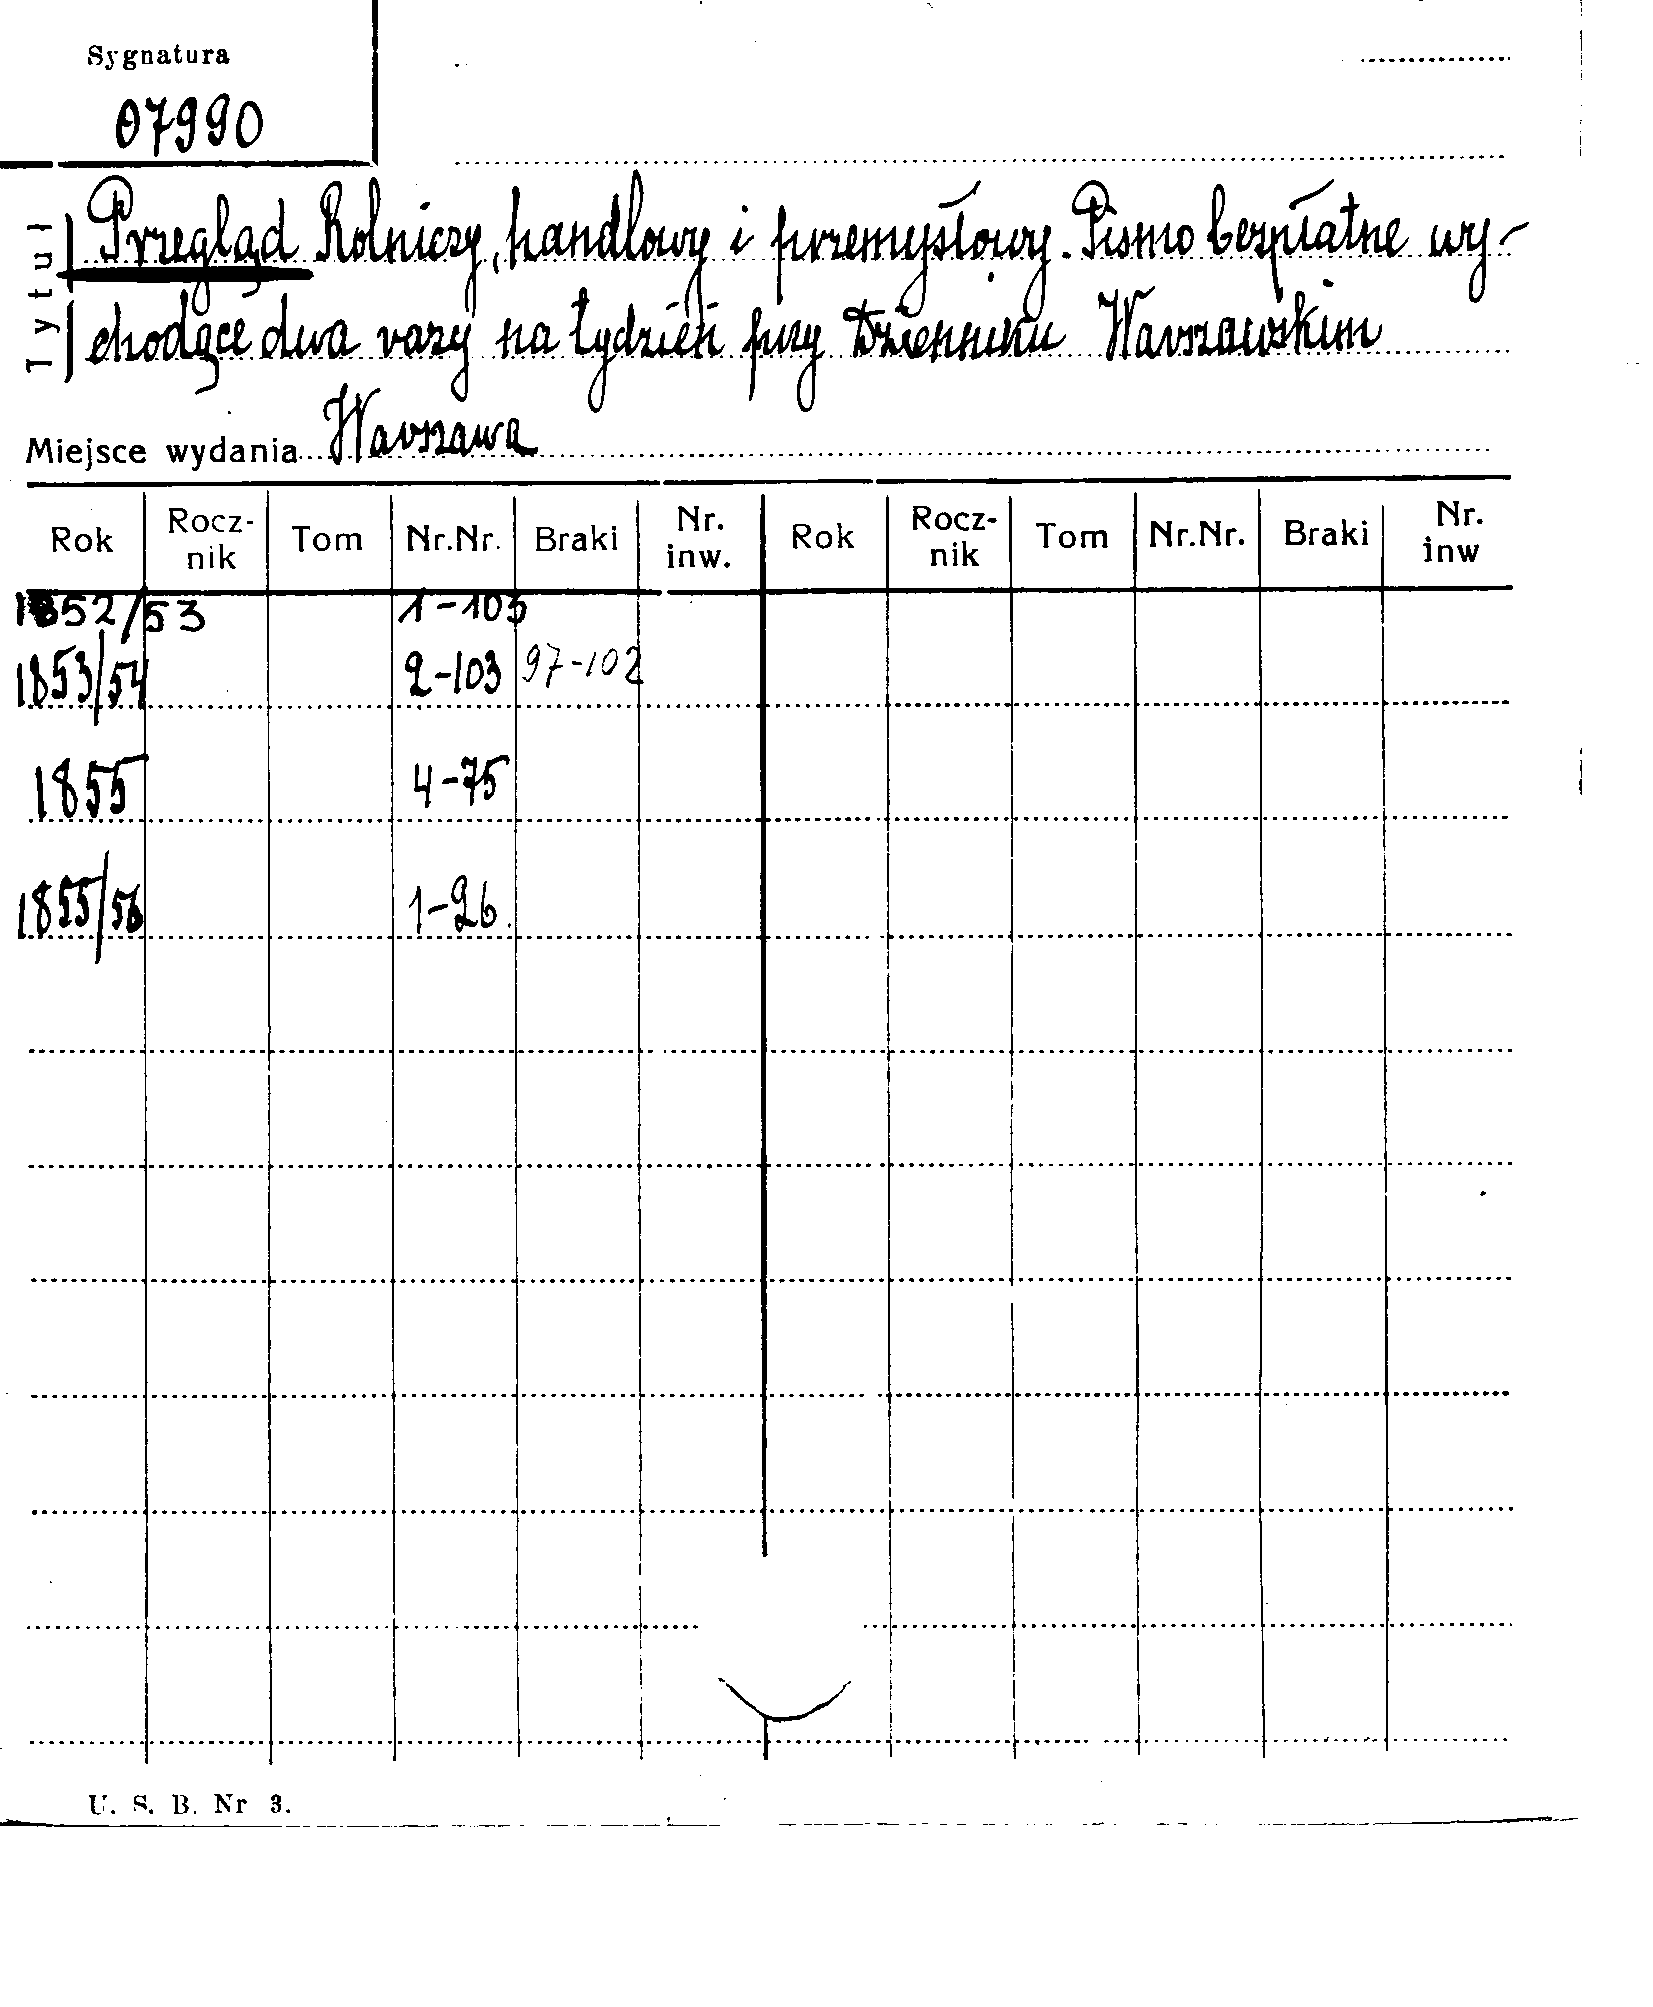 Sygnatura
07990
Tytuł
Przegląd Rolniczy, handlowy i przemysłowy. Pismo bezpłatne wy-
chodzące dwa razy na tydzień przy Dzienniku Warszawskim
Miejsce wydania Warszawa
Rok Rocz-nik Tom Nr.Nr. Braki Nr. inw. Rok Rocz-nik Tom Nr.Nr. Braki Nr. inw
1852/53 1-103
1853/54 2-103 97-102
1855 4-75
1855/56 1-26
U. S. B. Nr 3.